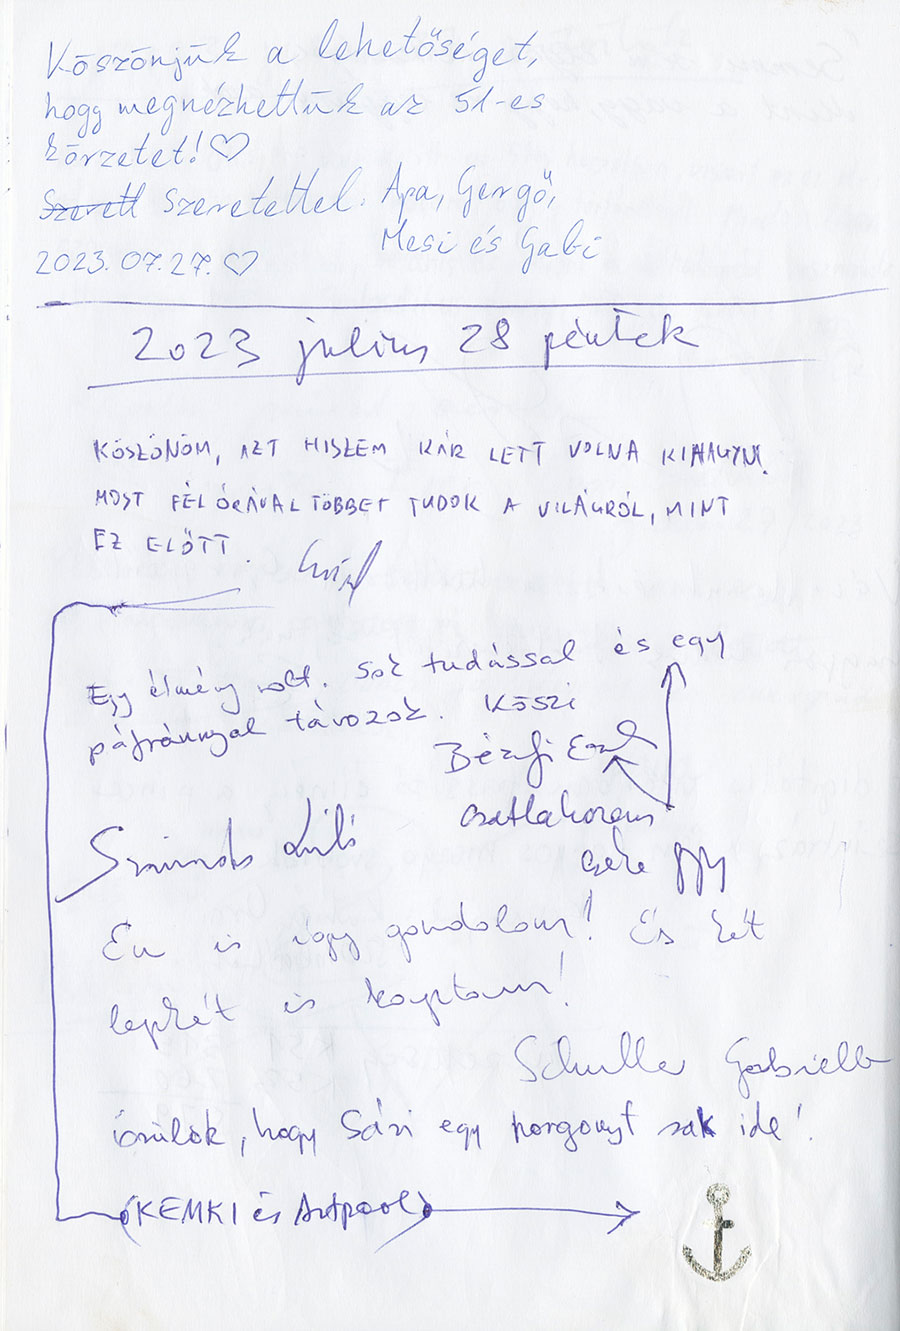 Köszönjük a lehetőséget,
hogy megnézhettük az 51-es
körzetet! ♡
Szerett szeretettel: Apa, Gergő,
Mesi és Gabi
2023.07.27. ♡
2023 július 28 péntek
KÖSZÖNÖM, AZT HISZEM KÁR LETT VOLNA KIHAGYNI.
MOST FÉL ÓRÁVAL TÖBBET TUDOK A VILÁGRÓL, MINT
EZ ELŐTT.
Egy élmény volt. Sok tudással és egy
páfránnyal távozok. Köszi
csatlakozom
Lili
Én is így gondolom! És két
lepkét is kaptam!
Schuller Gabriella
örülök, hogy Sári egy horgonyt rak ide!
(KEMKI és Artpool)